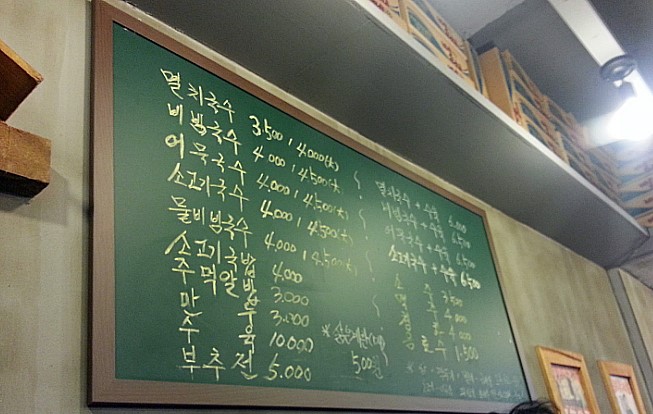 멸치국수 3,500, 4,000(大)
비빔국수 4,000, 4,500(大)
어묵국수 4,000, 4,500(大)
소고기국수 4,000, 4,500(大)
물비빔국수 4,000, 4,500(大)
소고기국밥 4,000
주먹알밥 3.000
만두 3.000
수육 10.000
부추전 5.000
*삶은계란 500원
멸치국수 + 수육 6.000
비빔국수 + 수육 6.500
어묵국수 + 수육 6.500
소고기국수 + 수육 6.500
소주 3.500
맥주 4.000
4.000
음료수 1.500